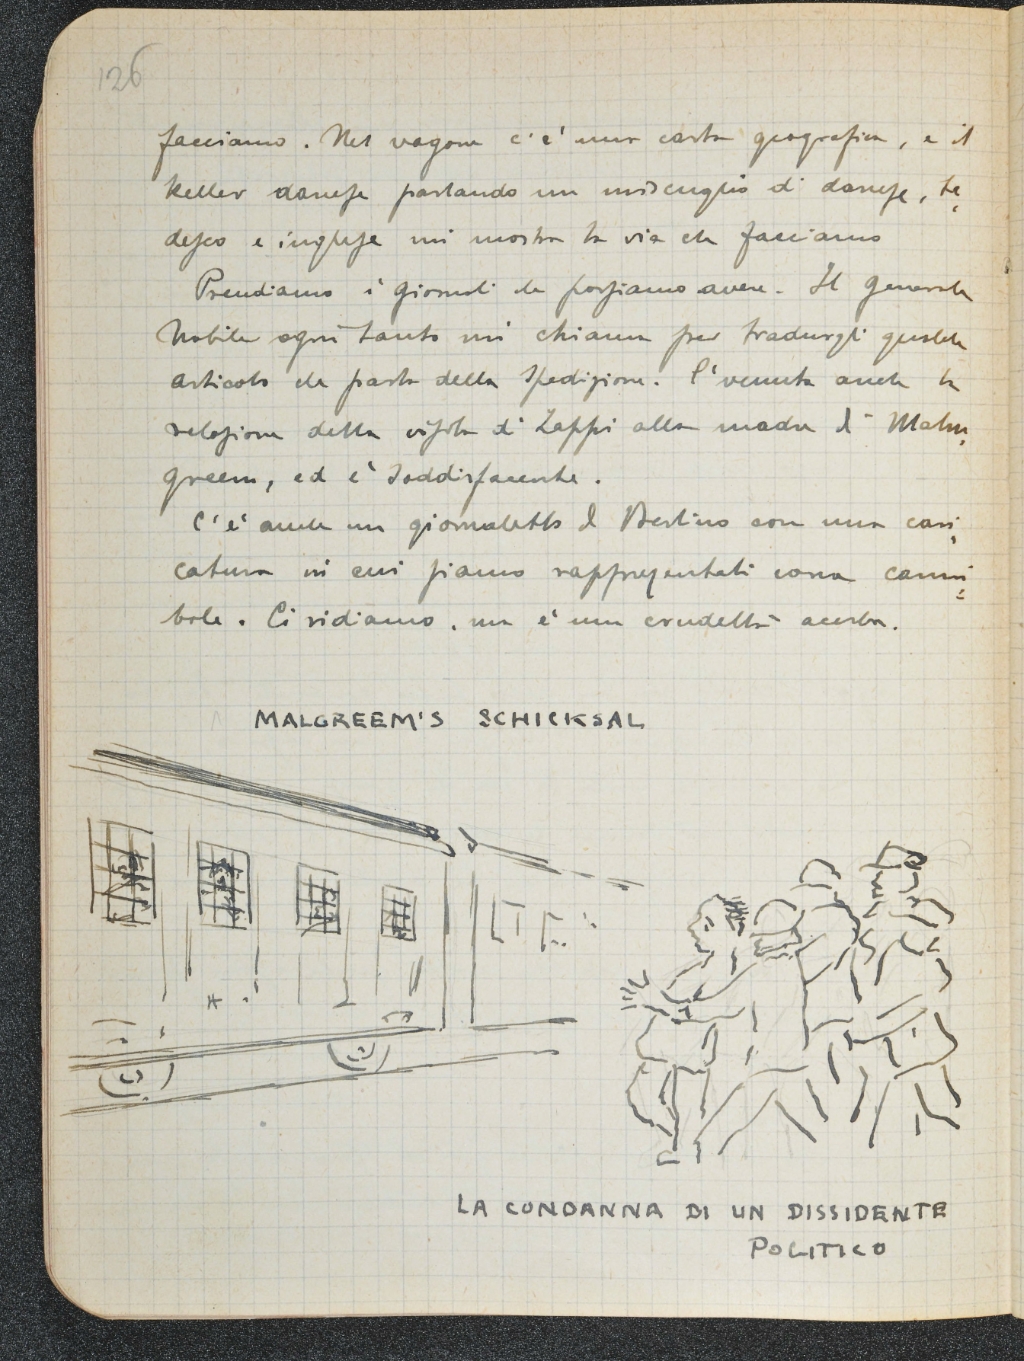 126
facciamo. Nel vagone c'è una carta geografica, e il
Keller danese parlando un miscuglio di danese, te
desco e inglese mi mostra la via che facciamo
Prendiamo i giornali che possiamo avere. Il generale
Nobile ogni tanto mi chiama per tradurgli qualche
articolo che parla della Spedizione. C'è venuta anche la
relazione della visita di Zappi alla madre di Malm
green, ed è soddisfacente.
C'è anche un giornaletto di Berlino con una cari
catura in cui siamo rappresentati come canni
bale. Ci ridiamo, ma è una crudeltà acerba.
MALGREEM'S SCHICKSAL
LA CONDANNA DI UN DISSIDENTE
POLITICO